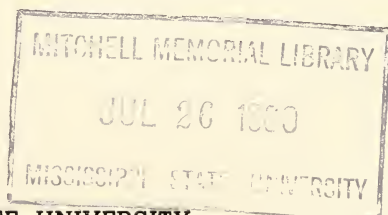 MITCHELL MEMORIAL LIBRARY
JUL 26
MISSISSIPPI STATE UNIVERSITY
UNIVERSITY